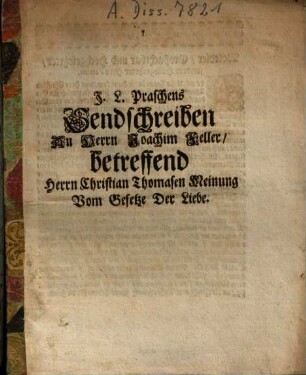 A. Diss. 7821
J. L. Praschens
Sendschreiben
An Herrn Joachim Feller/
betreffend
Herrn Christian Thomasen Meinung
Vom Gesetze Der Liebe.